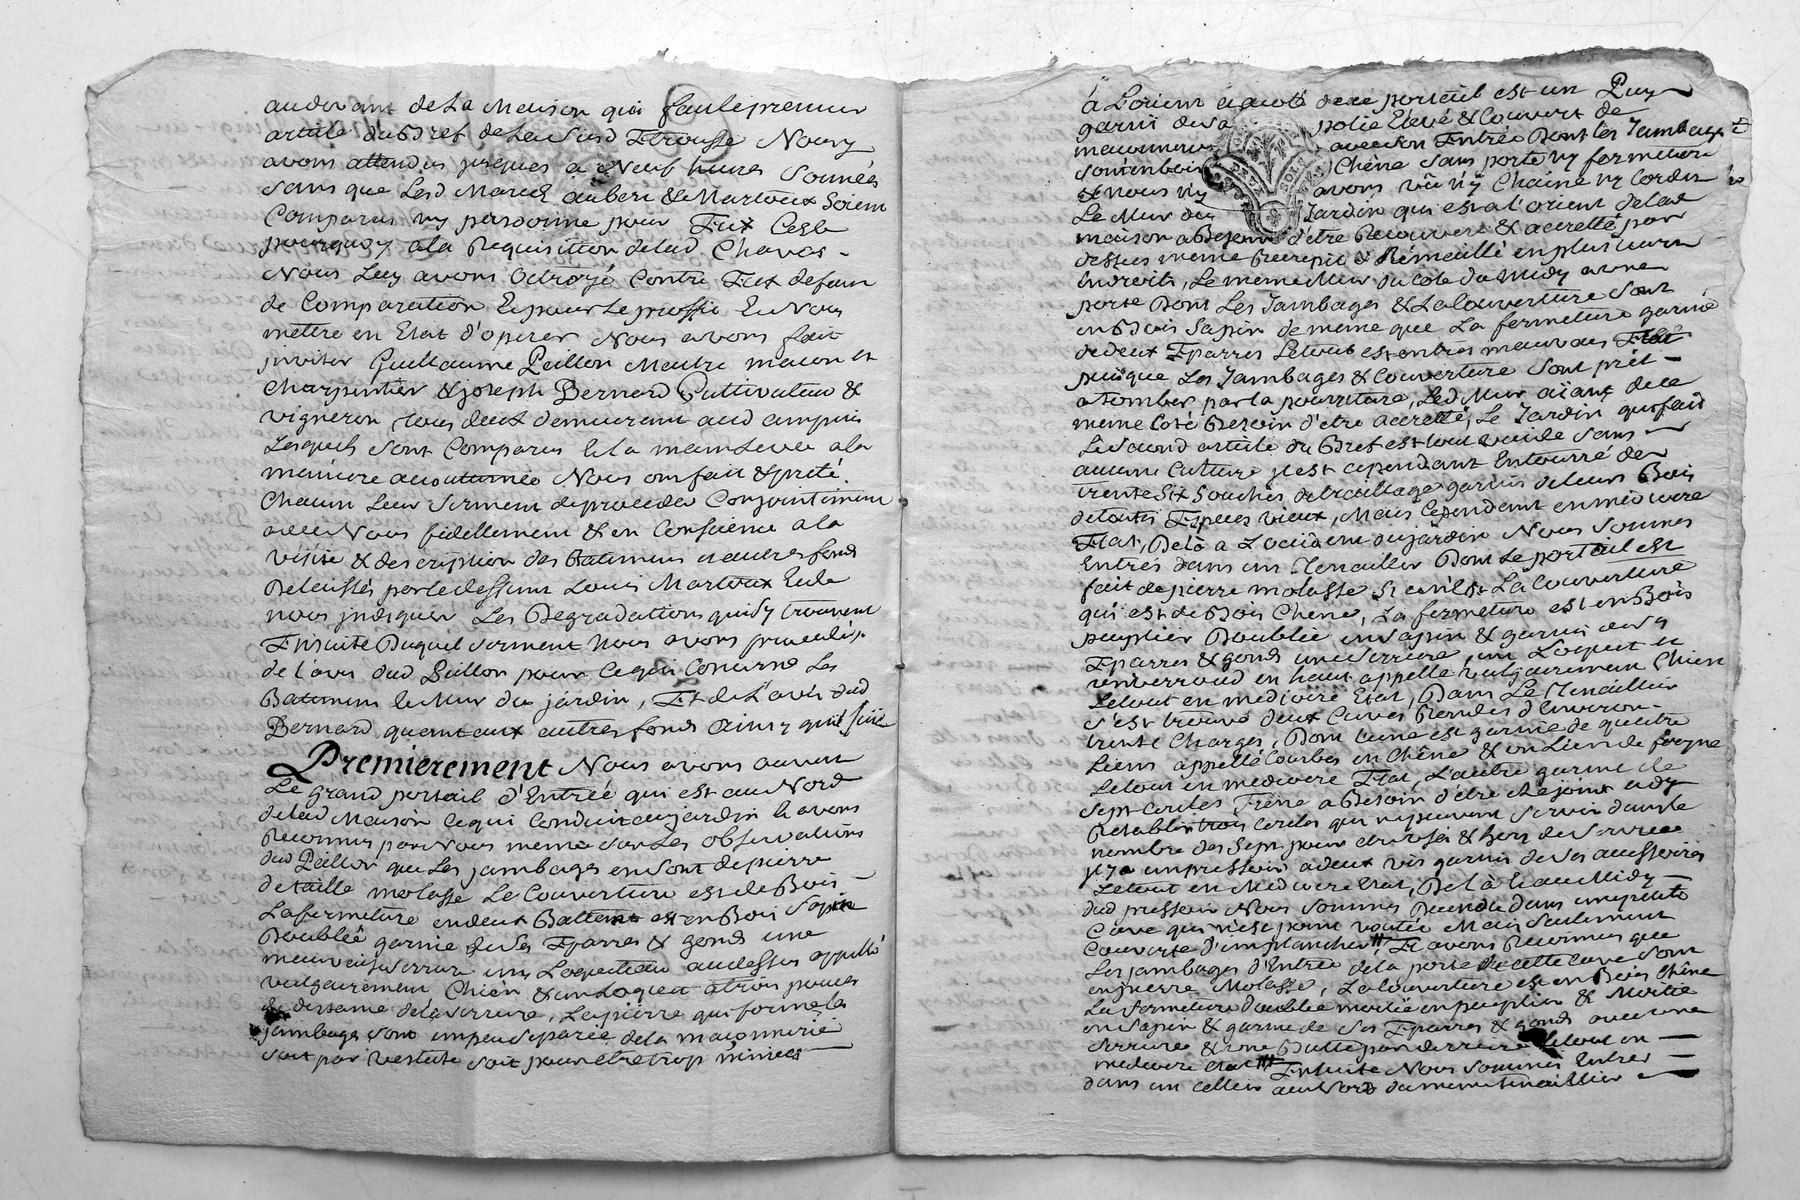 audevant de La Maison qui fait le premier
article du Bref de Lausard Nous y
avons attendus jusques a Neuf heures Sonnées
Sans que Lesd Marcel aubert & Martoux Soient
Comparus ny personne pour Eux Cest
pourquoy a la Requisition delad Chavas
Nous Luy avons Octroyé Contre Eux defaut
de Comparution Et pour Le proffit Et Nous
mettre en Etat d'operer Nous avons fait
inviter Guillaume Paillon Maitre maçon et
Charpentier & joseph Bernard Cultivateur &
vigneron tous deux demeurant aud
Lesquels Sont Comparus Et La main Levée a la
maniere accoutumée Nous ont fait & preté
Chacun Leur Serment de proceder Conjointement
avec Nous fidellement & en Conscience a la
visite & description des Batimens et autres fonds
Delaissés par Louis Martoux Et de
nous jndiquer Les Degradations qui S'y trouvent
Ensuite Duquel Serment Nous avons procedés
de L'avis dud Paillon pour Ce qui Concerne Les
Batimens Le Mur du jardin, Et de L'avis dud
Bernard quant aux autres fonds Ainsy qu'il Suit
Premierement Nous avons ouvert
Le grand portail d'Entrée qui est au Nord
delad Maison Ce qui Conduit au jardin Et avons
Reconnus par Nous meme Sur Les Observations
dud Paillon que Les jambages en Sont de pierre
de taille molasse Le Couverture est de Bois
La fermeture en deux Battant est en Bois Sapin
Doublée garnie de Ses Eparres & gonds une
mauvaise Serrure un Loqueteau au dessus appellé
vulgairement Chien & un Loquet a trois pouces
& au dessus de la Serrure, La pierre qui forme Les
jambages Sont un peu Separée de la maçonnerie
Soit par vestuté Soit pour etre trop minces
à L'orient a coté de ce portail est un Puy
garni de Sa polie Elevé & Couvert de
maconnerie avec Son Entrée Dont Les Jambages
Sont en bois Chêne Sans porte ny fermeture
& Nous n'y avons vû n'y Chaine ny Cordes
Le Mur du Jardin qui est a l'orient de lad
maison a Besoin d'etre Recouvert & acretté par
dessus meme Recrepit & Rémaillé en plusieurs
Endroits, Le meme Mur du Coté du Midy a une
porte Dont Les Jambages & La Couverture Sont
en Bois Sapin de meme que La fermeture garnie
de deux Eparres Le tout est en tres mauvais Etat
puisque Les Jambages & Couverture Sont prêt
a tomber par La pourriture, Led Mur aïant de ce
meme Coté Besoin d'etre Acretté, Le Jardin qui fait
Le Second article du Bref est tout vuide Sans
aucune Culture jl est cependant Entourré de
trente Six Souches de treillage garnis de leurs Bois
de toutes Especes vieux, Mais Cependant en mediocre
Etat, De là a L'occident du jardin Nous Sommes
Entrés dans un Tenaillier Dont Le portail est
fait de pierre molasse Si ce n'est La Couverture
qui est de Bois Chene, La fermeture est en Bois
peuplier Doublée en Sapin & garnie de Ses
Eparres & gonds une Serrure, un Loquet et
un verroud en haut appellé vulgairement Chien
Le tout en mediocre Etat, Dans Le Tenaillier
S'est trouvé deux Cuves Rondes d'Environ
trente Charges, Dont L'une est garnie de quatre
Liens appellé Courbes en Chêne & un Lien de
Le tout en mediocre Etat, L'autre garnie de
Sept Cercles Frêne a Besoin d'être Rejoint et d'y
Retablir trois Cercles qui ne peuvent Servir dans Le
nombre des Sept pour etre Usés & hors de Service
jl y a un pressoir a deux vis garni de Ses accessoires
Le tout en Mediocre Etat, De là Et au Midy
dud pressoir Nous Sommes Descendu dans une petite
Cave qui n'est point voutée Mais Seulement
Couverte d'un plancher, Et avons Reconnus que
Les jambages d'Entrée de la porte de cette cave Sont
en pierre Molasse, La Couverture est en Bois Chêne
La fermeture doublée moitié en peuplier & Moitié
en Sapin & garnie de Ses Eparres & gonds avec une
Serrure & une Butte par derriere Le tout en
mediocre Etat Ensuite Nous Sommes Entrés
dans un cellier au Nord du meme tenaillier